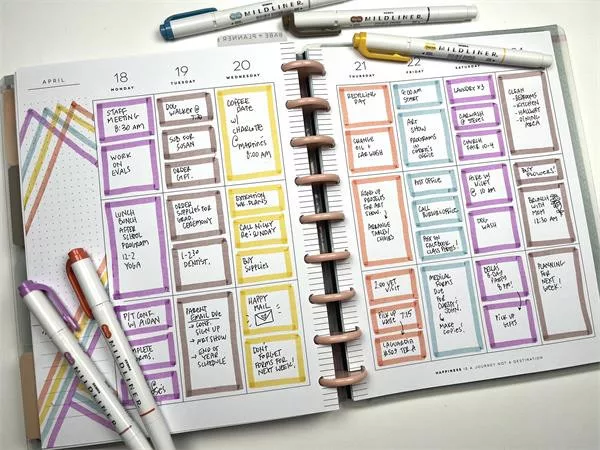 MILDLINER
MILDLINER
MILDLINER
BABE + PLANNER
APRIL
18
MONDAY
STAFF
MEETING
8:30 AM
WORK
ON
EVALS
LUNCH
BUNCH
AFTER
SCHOOL
PROGRAM
12-2
YOGA
P/T CONF.
W/ AIDAN
FORMS!
19
TUESDAY
DOG
WALKER @
7:30
SUB FOR
SUSAN
ORDER
GIFT.
ORDER
SUPPLIES FOR
GRAD.
CEREMONY
1-2:30
DENTIST.
PARENT
EMAIL DUE
→ CONF.
SIGN UP
→ ART SHOW
→ END OF
YEAR
SCHEDULE
20
WEDNESDAY
COFFEE
DATE
W/
CHARLOTTE
@
MARTINE'S
8:00 AM
EXTENTION
WK. PLANS
CALL NICKY
RE: SUNDAY
BUY
SUPPLIES
HAPPY
MAIL
DON'T
FORGET
FORMS FOR
NEXT WEEK!
21
THURSDAY
RECYCLING
DAY
CHANGE
OIL +
CAR WASH
ROUND UP
EASELS FOR ART
SHOW.
ARRANGE
TABLES/
CHAIRS
2:00 VET
VISIT
PICK UP
7:15
LAGUARDIA
TER. A
22
FRIDAY
9:00 AM
START
ART
SHOW
PROGRAMS
IN
OFFICE
POST OFFICE
CALL
PAY ON
CLASS PARTY!
MEDICAL
FORMS
DUE
FOR
JOHN.
MAKE
COPIES!
LAUNDRY X3
CARWASH
@ STEVE'S
LUNCH
FAIR 10-4
HIKE W/
NICKY
@ 10 AM
DOG
WASH
BELLA'S
B-DAY
PARTY
PICK UP
GIFTS
CLEAN
- BEDROOMS
- KITCHEN
- HALLWAY
- DINING
AREA
BUY
FLOWERS!
BRUNCH
WITH
MOM
11:30 AM
PLANNING
FOR
NEXT
WEEK!
HAPPINESS IS A JOURNEY NOT A DESTINATION
MILDLINER
MILDLINER